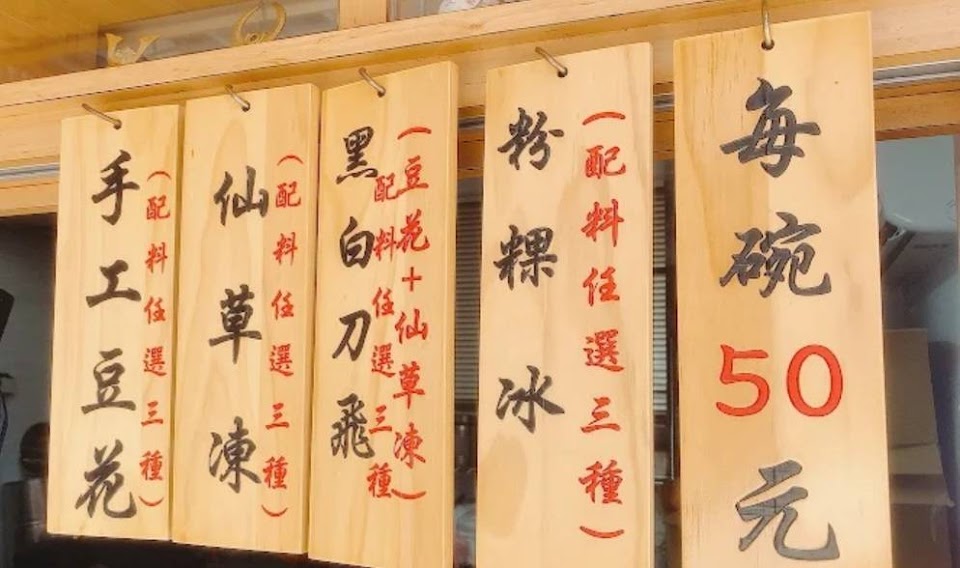 每碗50元
粉粿冰
(配料任選三種)
黑白刀飛
(豆花+仙草凍)
配料任選三種
仙草凍
(配料任選三種)
手工豆花
(配料任選三種)